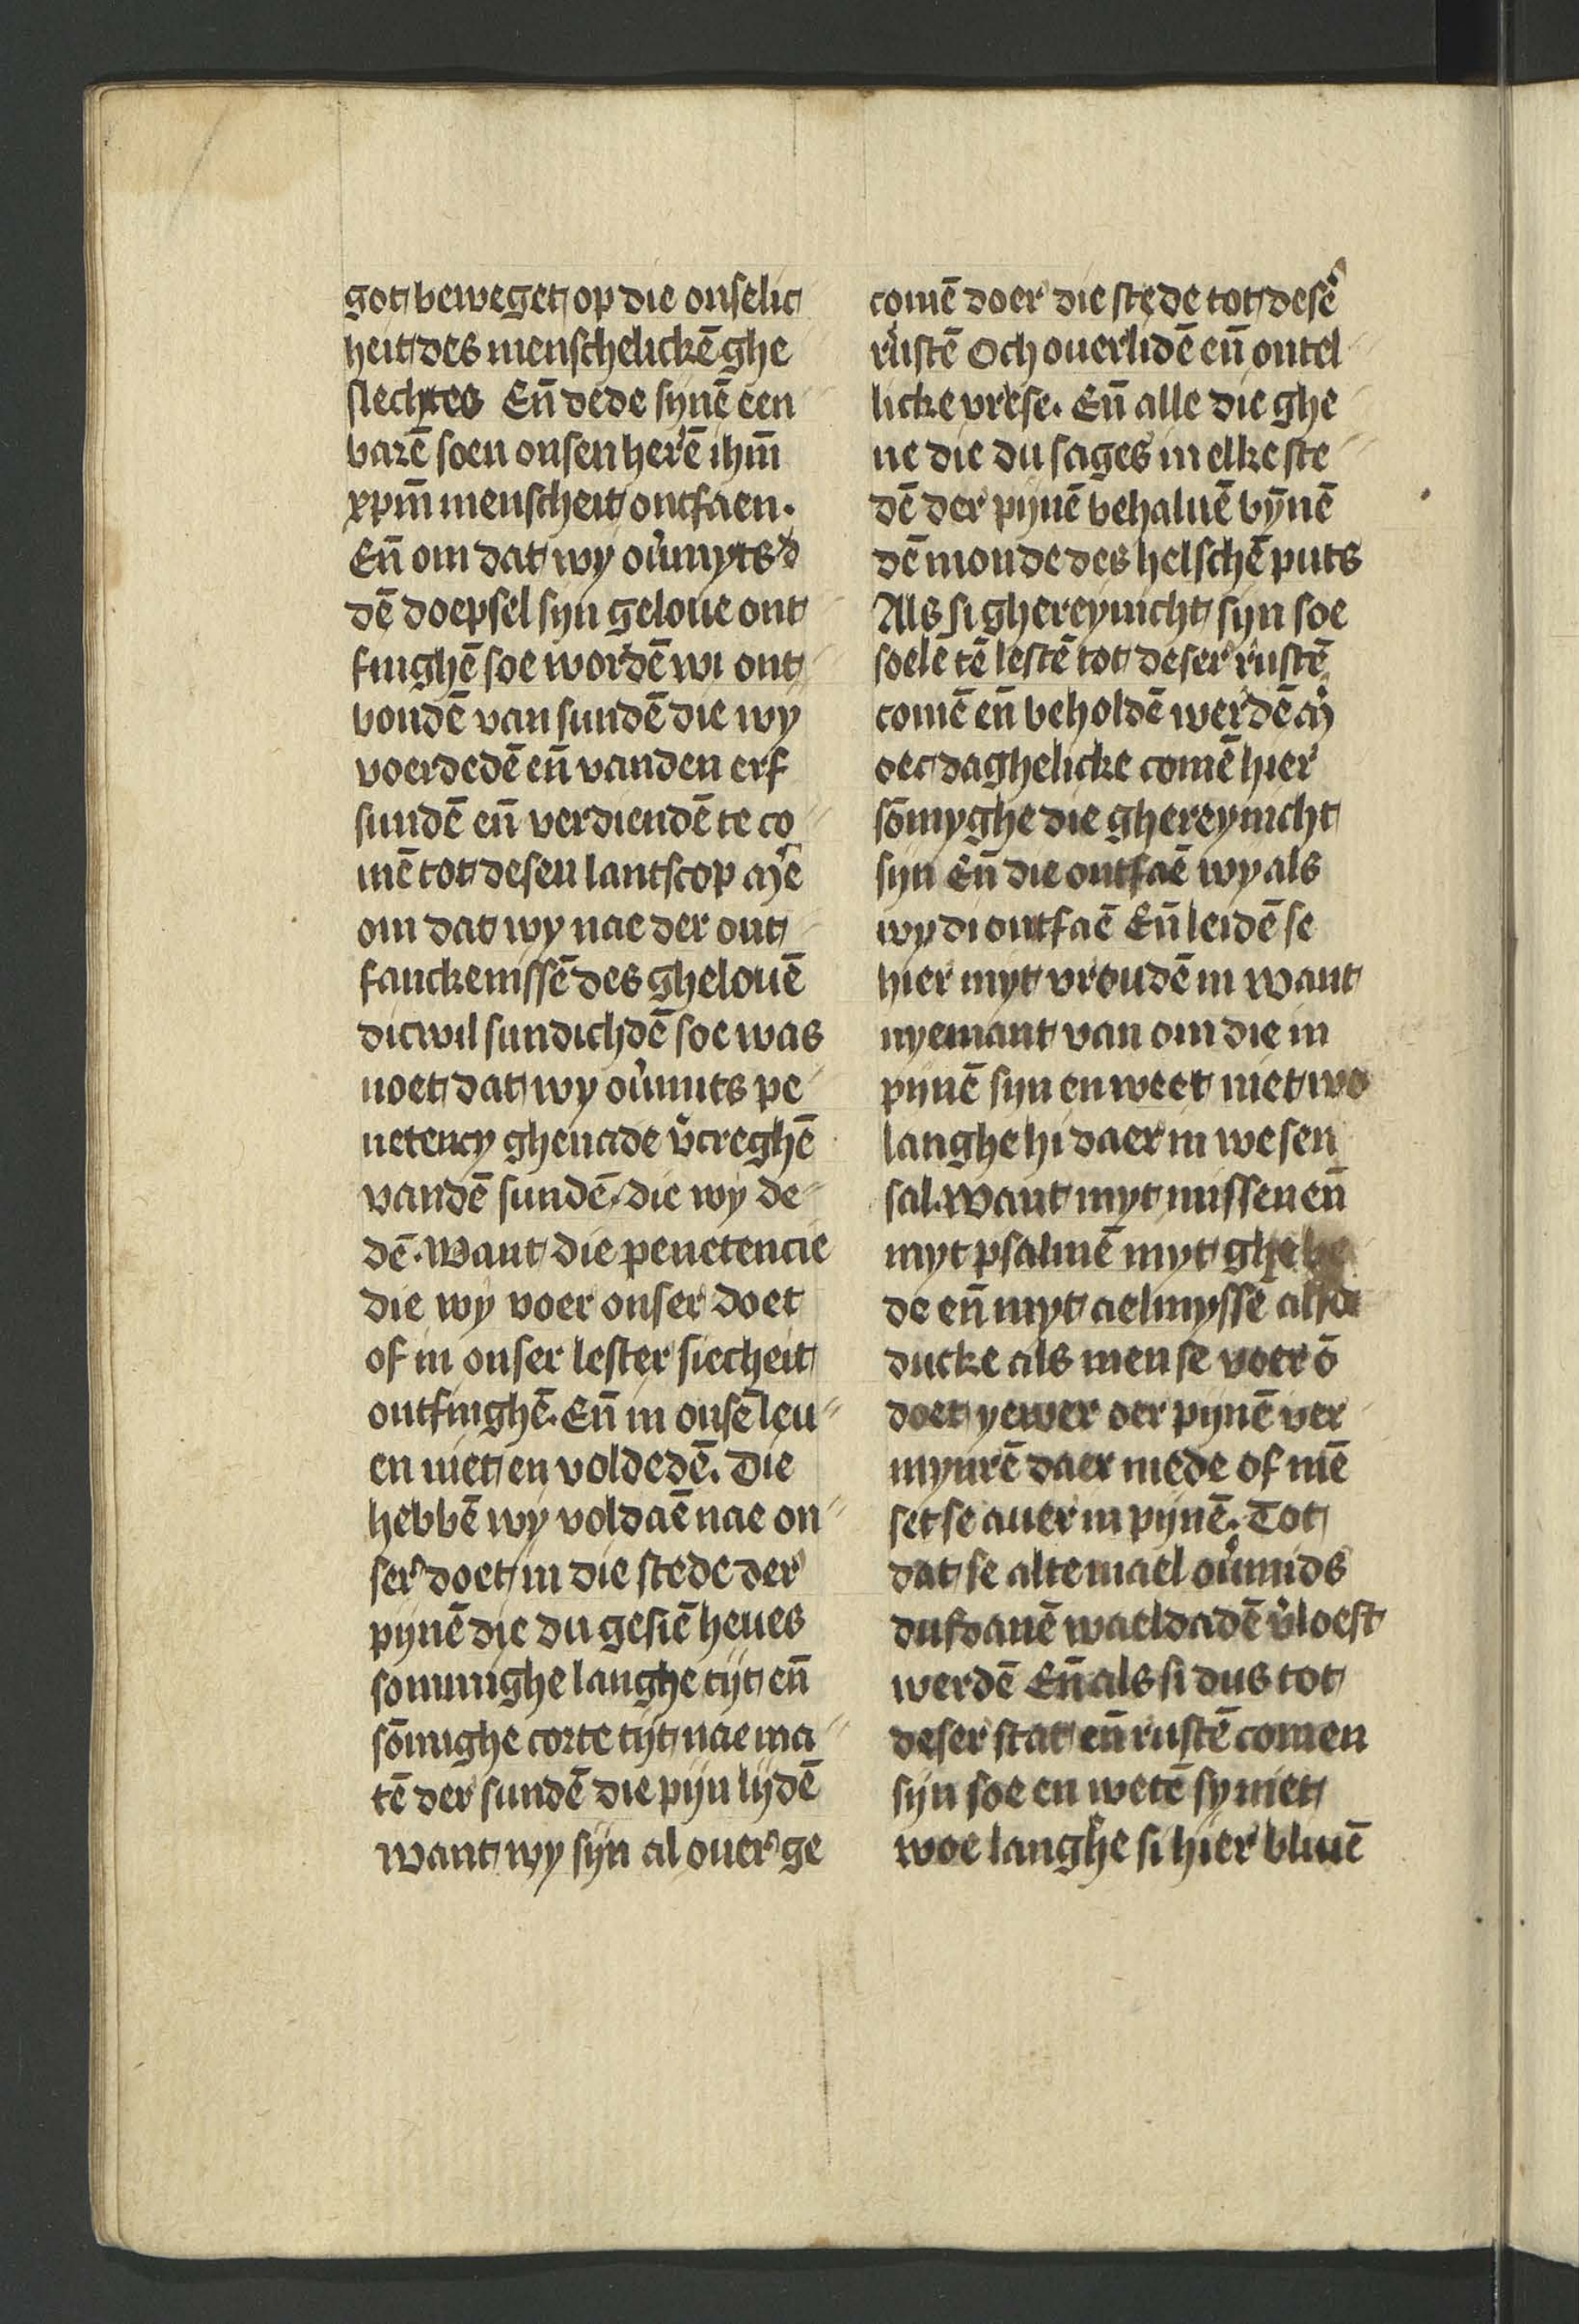 got beweget op die onselic
heit des menschelickē ghe
slechtes Eñ dede synē een
barē soen onsen herē ihm̄
xpm̄ menscheit ontfaen.
Eñ om dat wy ou̾myts d
dē doepsel syn geloue ont
finghē soe wordē wi ont
bondē van sundē die wy
voerdedē eñ vanden erf
sundē eñ verdiendē te co
mē tot desen lantscop
om dat wy nae der ont
fanckenissē des ghelouē
dicwil sundichdē soe was
noet dat wy ou̾mits pe
netency ghenade v̾creghē
vandē sundē die wy de
dē. Want die penetencie
die wy voer onser doet
of in onser lester siecheit
ontfinghē. Eñ in onsē leu
en niet en voldedē. Die
hebbē wy voldaē nae on
ser doet in die stede der
pynē die du gesiē heues
sommighe langhe tijt eñ
sōmighe corte tijt nae ma
tē der sundē die pijn lijdē
want wy sijn al ouer ge
comē doer die stede tot desē
rustē Och ouerlidē eñ ontel
licke vrese. Eñ alle die ghe
ne die du sages in elke ste
dē der pijnē behaluē bȳnē
dē monde des helschē puts
Als si ghereynicht sijn soe
soelē tē lestē tot deser rustē
comē eñ beholdē werdē
oec daghelicke comē hier
sōmyghe die ghereynicht
sijn Eñ die ontfaē wy als
wy di ontfaē Eñ leidē se
hier myt vroudē in want
nyemant van om die in
pijnē sijn en weet niet wo
langhe hi daer in wesen
sal. Want myt missen eñ
myt psalmē myt ghebe
de eñ myt aelmyssē also
ducke als men se voer ō
doet yewer oer pijnē ver
mynrē daer mede of mē
set se auer in pijnē. Tot
dat se altemael ou̾mids
dusdanē waeldadē v̾loest
werdē Eñ als si dus tot
deser stat eñ rustē comen
sijn soe en wetē sy niet
woe langhe si hier bliuē